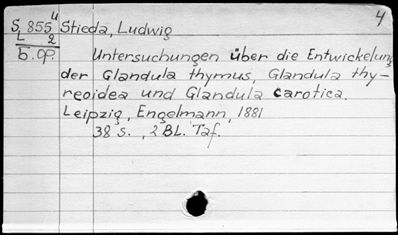 4
S 855 4 Stieda, Ludwig
L 2
b. qp. Untersuchungen über die Entwickelung
der Glandula thymus, Glandula thy-
reoidea und Glandula carotica.
Leipzig, Engelmann, 1881
38 S., 2 BL. Taf.